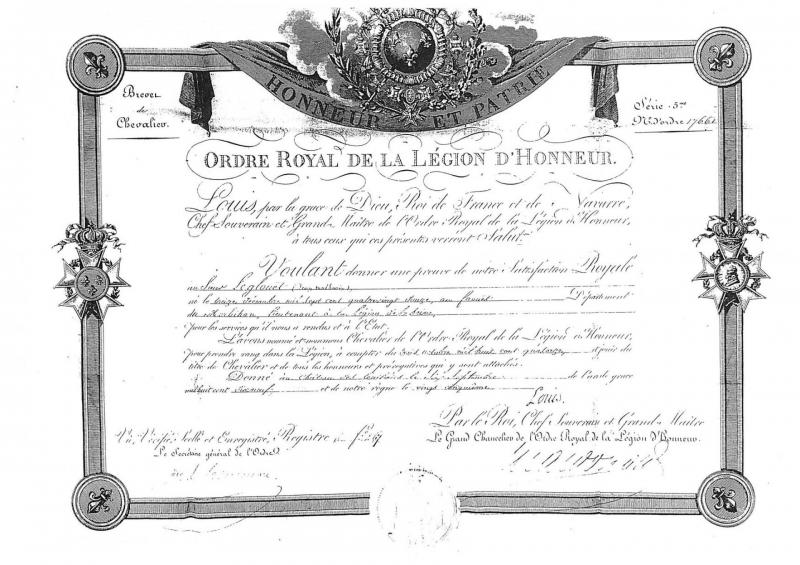 HONNEUR ET PATRIE
Brevet
de
Chevalier.
Série 5me
No. d'ordre 17661
ORDRE ROYAL DE LA LÉGION D'HONNEUR.
Louis, par la grace de Dieu, Roi de France et de Navarre,
Chef Souverain et Grand-Maître de l'Ordre Royal de la Légion d'Honneur,
à tous ceux qui ces présentes verront Salut.
Voulant donner une preuve de notre Satisfaction Royale
au Sieur Leglouet
né le treize Décembre mil sept cent quatrevingt au Département
du Morbihan, Lieutenant à la Légion de la Seine,
pour les services qu'il nous a rendus et à l'Etat.
L'avons nommé et nommons Chevalier de l'Ordre Royal de la Légion d'Honneur,
pour prendre rang dans la Légion, à compter du mil huit cent quatorze et jouir du
titre de Chevalier et de tous les honneurs et prérogatives qui y sont attachés.
Donné au Château des Tuileries le Septembre de l'an de grace
mil huit cent dixneuf et de notre règne le vingt cinquième
Louis.
Par le Roi, Chef Souverain et Grand-Maître
Le Grand Chancelier de l'Ordre Royal de la Légion d'Honneur.
Vu, Vérifié, Scellé et Enregistré, Registre fo. 67
Le Secrétaire général de l'Ordre